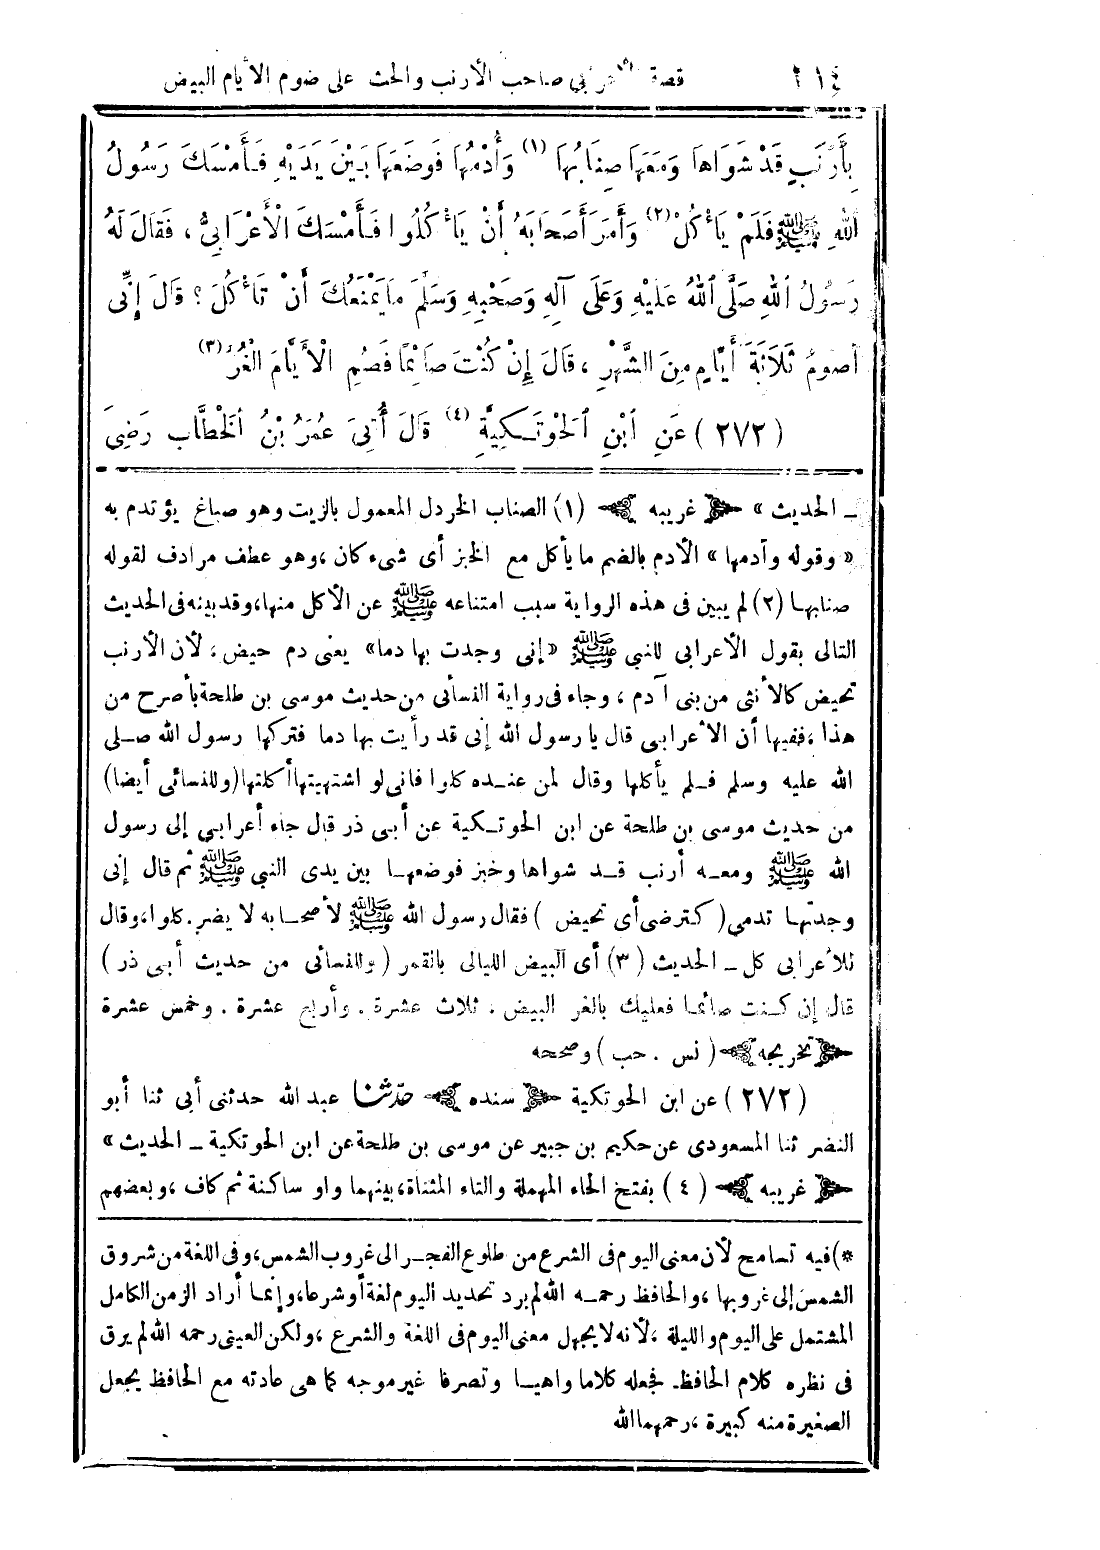 ٢١٤ قصة الأعرابي صاحب الأرنب والحث على صوم الأيام البيض
بِأَرْنَبٍ قَدْ شَوَاهَا وَمَعَهَا صِنَابُهَا (١) وَأُدْمُهَا فَوَضَعَهَا بَيْنَ يَدَيْهِ فَأَمْسَكَ رَسُولُ
اللهِ ﷺ فَلَمْ يَأْكُلْ (٢) وَأَمَرَ أَصْحَابَهُ أَنْ يَأْكُلُوا فَأَمْسَكَ الْأَعْرَابِيُّ ، فَقَالَ لَهُ
رَسُولُ اللهِ صَلَّى اللهُ عَلَيْهِ وَعَلَى آلِهِ وَصَحْبِهِ وَسَلَّمَ مَا يَمْنَعُكَ أَنْ تَأْكُلَ ؟ قَالَ إِنِّى
أَصُومُ ثَلَاثَةَ أَيَّامٍ مِنَ الشَّهْرِ ، قَالَ إِنْ كُنْتَ صَائِمًا فَصُمِ الْأَيَّامَ الْغُرَّ (٣)
(٢٧٢) عَنِ ابْنِ الْحَوْتَكِيَّةِ (٤) قَالَ أُتِىَ عُمَرُ بْنُ الْخَطَّابِ رَضِىَ
ـ الحديث » ﴿ غريبه ﴾ (١) الصناب الخردل المعمول بالزيت وهو صباغ يؤتدم به
« وقوله وأدمها » الأدم بالضم ما يأكل مع الخبز أى شىء كان ، وهو عطف مرادف لقوله
صنابها (٢) لم يبين فى هذه الرواية سبب امتناعه ﷺ عن الأكل منها، وقد بينه فى الحديث
التالى بقول الأعرابى للنبى ﷺ «إنى وجدت بها دما» يعنى دم حيض ، لأن الأرنب
تحيض كالأنثى من بنى آدم ، وجاء فى رواية النسائى من حديث موسى بن طلحة بأصرح من
هذا ، ففيها أن الأعرابى قال يا رسول الله إنى قد رأيت بها دما فتركها رسول الله صلى
الله عليه وسلم فلم يأكلها وقال لمن عنده كلوا فانى لو اشتهيتها أكلتها (وللنسائى أيضا)
من حديث موسى بن طلحة عن ابن الحوتكية عن أبى ذر قال جاء أعرابى إلى رسول
الله ﷺ ومعه أرنب قد شواها وخبز فوضعها بين يدى النبى ﷺ ثم قال إنى
وجدتها تدمي (كترضى أى تحيض ) فقال رسول الله ﷺ لأصحابه لا يضر. كلوا، وقال
للأعرابى كل ـ الحديث (٣) أى البيض الليالى بالقمر ( وللنسائى من حديث أبى ذر )
قال إن كنت صائما فعليك بالغر البيض ، ثلاث عشرة . وأربع عشرة . وخمس عشرة
﴿ تخريجه ﴾ ( نس . حب ) وصححه
(٢٧٢) عن ابن الحوتكية ﴿ سنده ﴾ حدّثنا عبد الله حدثنى أبى ثنا أبو
النضر ثنا المسعودى عن حكيم بن جبير عن موسى بن طلحة عن ابن الحوتكية ـ الحديث »
﴿ غريبه ﴾ (٤) بفتح الحاء المهملة والتاء المثناة، بينهما واو ساكنة ثم كاف ، وبعضهم
*) فيه تسامح لأن معنى اليوم فى الشرع من طلوع الفجر الى غروب الشمس، وفى اللغة من شروق
الشمس إلى غروبها ، والحافظ رحمه الله لم يرد تحديد اليوم لغة أو شرعا، وإنما أراد الزمن الكامل
المشتمل على اليوم والليلة ، لأنه لا يجهل معنى اليوم فى اللغة والشرع ، ولكن العينى رحمه الله لم يرق
فى نظره كلام الحافظ . فجعله كلاما واهيا وتصرفا غير موجه كما هى عادته مع الحافظ يجعل
الصغيرة منه كبيرة ، رحمهما الله